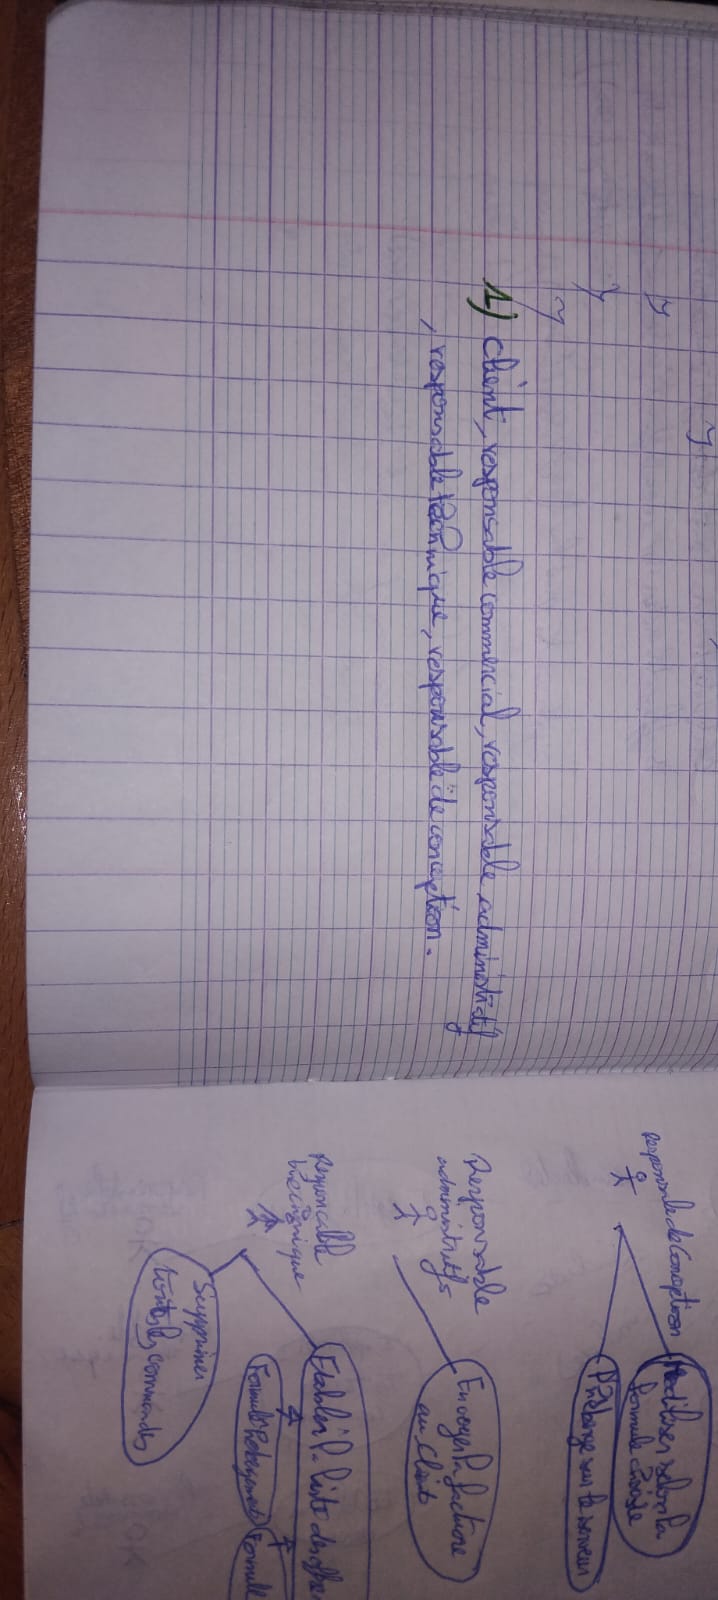 1) client, responsable commercial, responsable administratif
, responsable technique, responsable de conception.
Responsable de Conception
formule choisie
sur le serveur
Responsable
administratifs
Envoyer la facture
au Client
Responsable
technique
Etablir la liste des offres
Formule
Supprimer
toutes les commandes